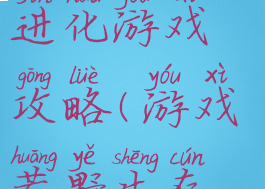 进化游戏
gōng lüè yóu xì
攻略(游戏
huāng yě shēng cún
荒野生存